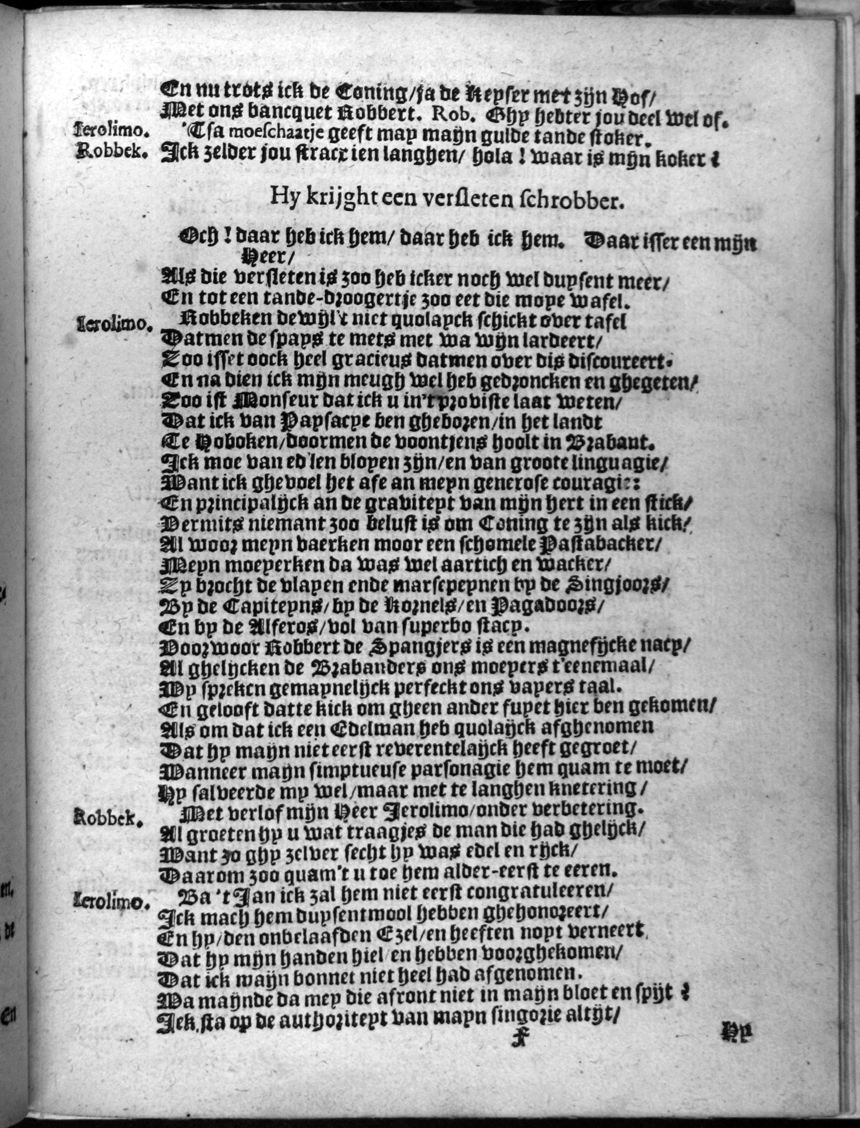 En nu trots ick de Coning/ja de Keyser met zijn Hof/
Met ons bancquet Robbert. Rob. Ghy hebter jou deel wel of.
Ierolimo. 'Tsa moeschaatje geeft may mayn gulde tande stoker.
Robbek. Ick zelder jou stracx ien langhen/ hola! waar is mijn koker?
Hy krijght een versleten schrobber.
Och! daar heb ick hem/ daar heb ick hem. Daar isser een mijn
Heer/
Als die versleten is zoo heb icker noch wel duysent meer/
En tot een tande-droogertje zoo eet die moye wafel.
Ierolimo. Robbeken dewijl't niet quolayck schickt over tafel
Datmen de spays te mets met wa wijn lardeert/
Zoo isset oock heel gracieus datmen over dis discoureert.
En na dien ick mijn meugh wel heb gedroncken en ghegeten/
Zoo ist Monseur dat ick u in't proviste laat weten/
Dat ick van Paysacye ben gheboren/in het landt
Te Hoboken/doormen de voontjens hoolt in Brabant.
Ick moe van ed'len bloyen zijn/en van groote linguagie/
Want ick ghevoel het ase an meyn generose couragie:
En principalijck an de graviteyt van mijn hert in een stick/
Vermits niemant zoo belust is om Coning te zijn als kick/
Al woor meyn vaerken moor een schomele Pastabacker/
Meyn moeyerken da was wel aartich en wacker/
Zy brocht de vlayen ende marsepeynen by de Singjoors/
By de Capiteyns/by de Kornels/en Pagadoors/
En by de Alferos/vol van superbo stacy.
Voorwoor Robbert de Spangjers is een magnefijcke nacy/
Al ghelijcken de Brabanders ons moeyers t'eenemaal/
Wy spreken gemaynelijck perfeckt ons vayers taal.
En gelooft datte kick om gheen ander fuyet hier ben gekomen/
Als om dat ick een Edelman heb quolaijck afghenomen
Dat hy maijn niet eerst reverentelaijck heeft gegroet/
Wanneer maijn simptueuse parsonagie hem quam te moet/
Hy salveerde my wel/maar met te langhen knetering/
Robbek. Met verlof mijn Heer Ierolimo/onder verbetering.
Al groeten hy u wat traagjes de man die had ghelijck/
Want zo ghy zelver secht hy was edel en rijck/
Daarom zoo quam't u toe hem alder-eerst te eeren.
Ierolimo. Ba 't Jan ick zal hem niet eerst congratuleeren/
Ick mach hem duysentmool hebben ghehonoreert/
En hy/den onbelaafden Ezel/en heeften noyt verneert
Dat hy mijn handen hiel en hebben voorghekomen/
Dat ick maijn bonnet niet heel had afgenomen.
Wa maijnde da mey die afront niet in maijn bloet en spijt?
Ick sta op de authoriteyt van mayn singorie altijt/
f
Hy